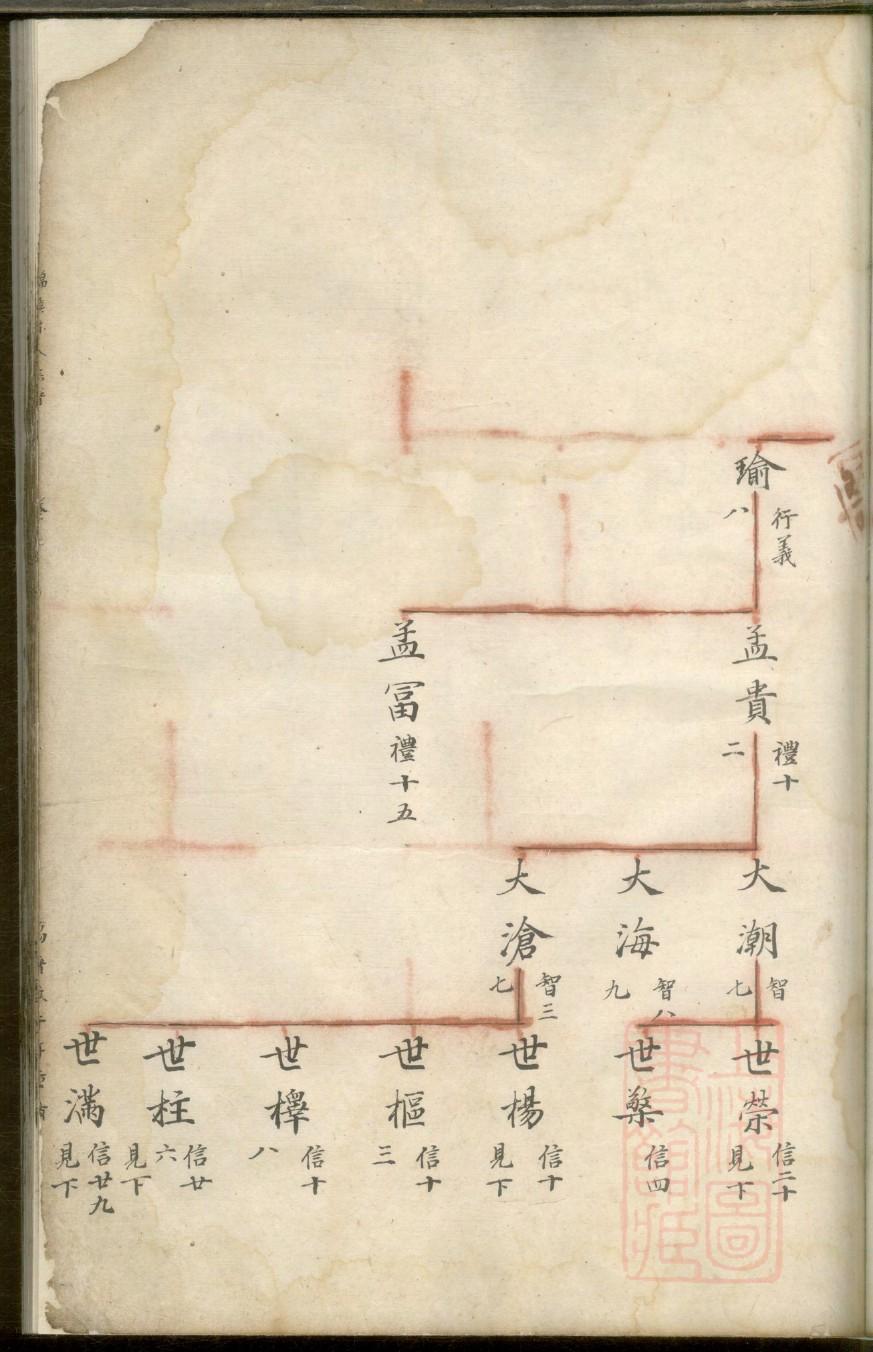 瑜
行義
八
孟貴
禮十
二
孟冨禮十五
大潮
智
七
大海
智八
九
大滄
智三
七
世榮
信二十
見下
世檠
信四
世楊
信十
見下
世樞
信十
三
世檡
信十
八
世柱
信廿
六
見下
世滿
信廿九
見下
上海圖書館藏